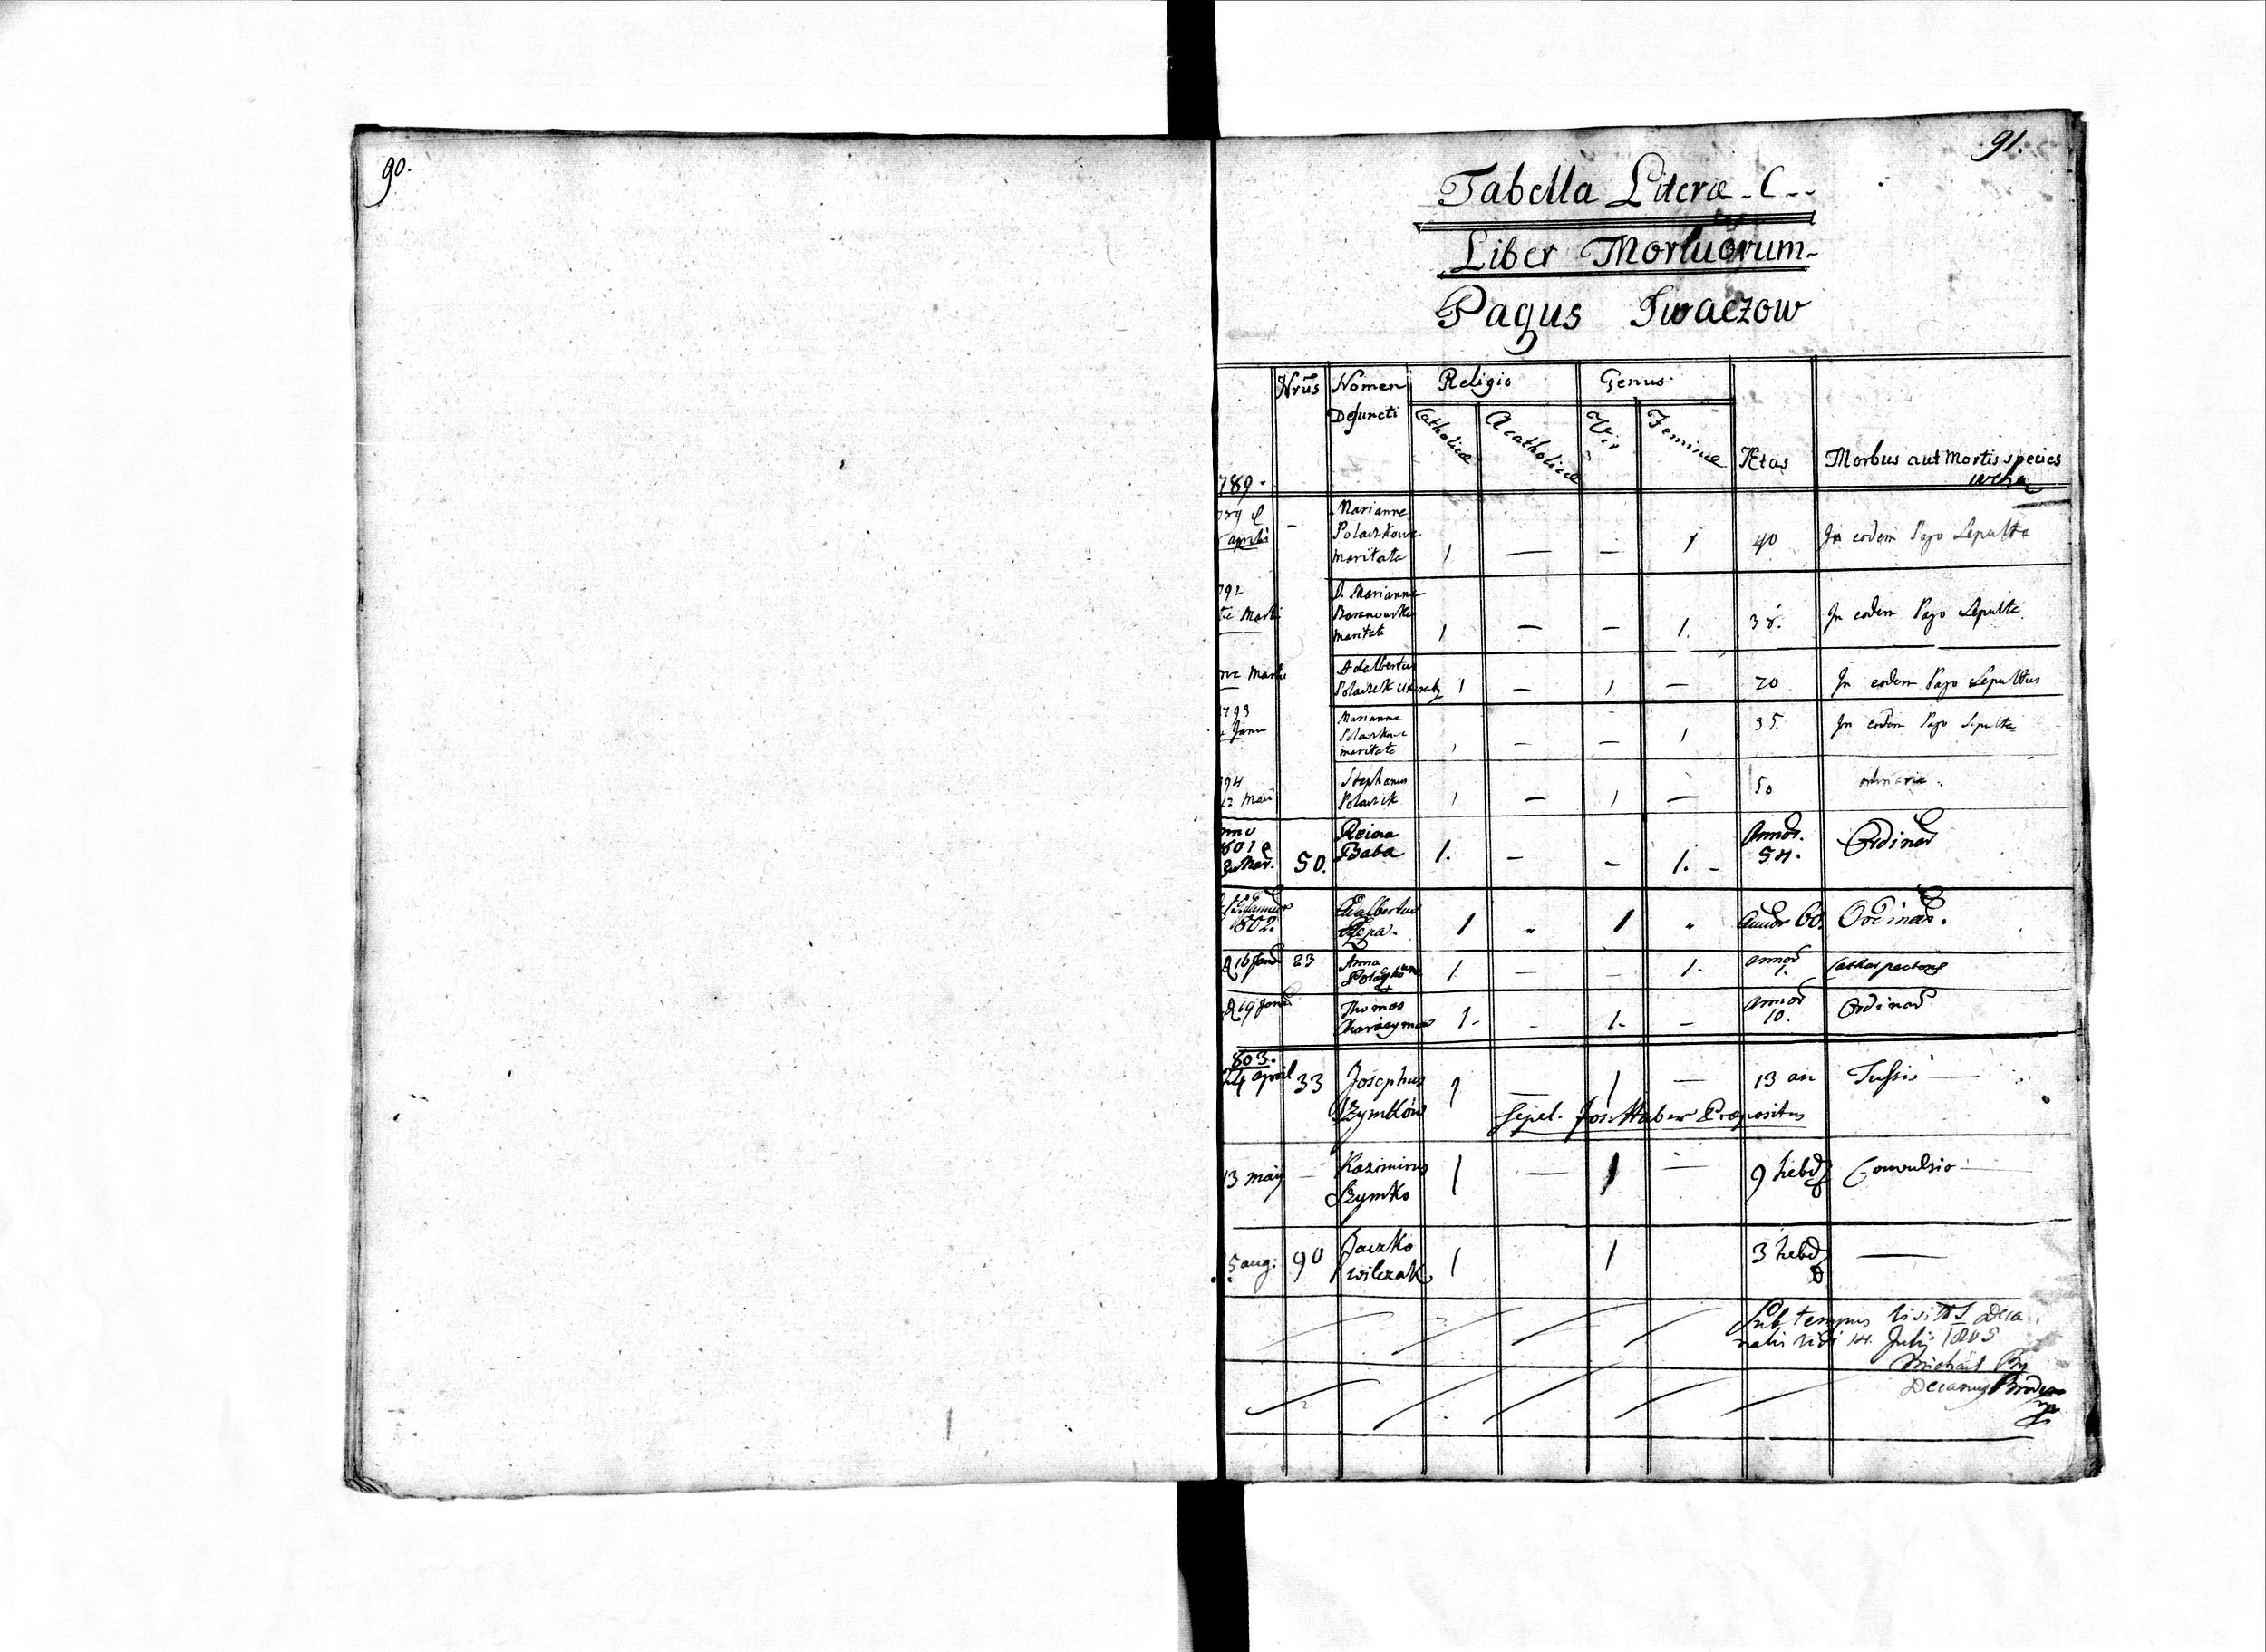 90.
91.
Tabella Literæ C
Liber Mortuorum
Pagus Iwaczow
Nrus Nomen Defuncti Religio Genus
Catholicæ Acatholicæ Vir Feminæ
Ætas Morbus aut Mortis species
789.
aprilis
Marianna
Polaczkowa
maritata 1 — — 1 40 In eodem Pago Sepulta
792
Marti
D. Marianna
Baranowska
maritata 1 — — 1. 38. In eodem Pago Sepulta
Adalbertus
Polaczek 1 — 1 — 70 In eodem Pago Sepultus
793
Janu
Marianna
Polaczkowa
maritata 1 — — 1 35 In eodem Pago Sepulta
794
Maii
Stephanus
Polaczek 1 — 1 — 50 ordinaria.
801
3 Mar. 50.
Regina
Baba 1. — — 1. — Annor. 54. Ordinar
802.
Adalbertus
1 " 1 " Annor 60. Ordinar.
16 Januar 23 Anna
1. — — 1. annor 1.
19 Januar Thomas
Charasymow 1. — 1. — Annor 10. Ordinar
803.
24 april 33 Josephus
Szymków 1 — 1 — 13 an Tussis —
sepel. Jos. Huber Præpositus
13 maij — Kazimirus
Szymko 1 — 1 — 9 hebd Convulsio —
5 aug. 90 Jaczko
wilczak 1 1 3 hebd —
Sub tempus Visitis Deca
nalis vidi 14. Julij 1805
Michael
Decanus